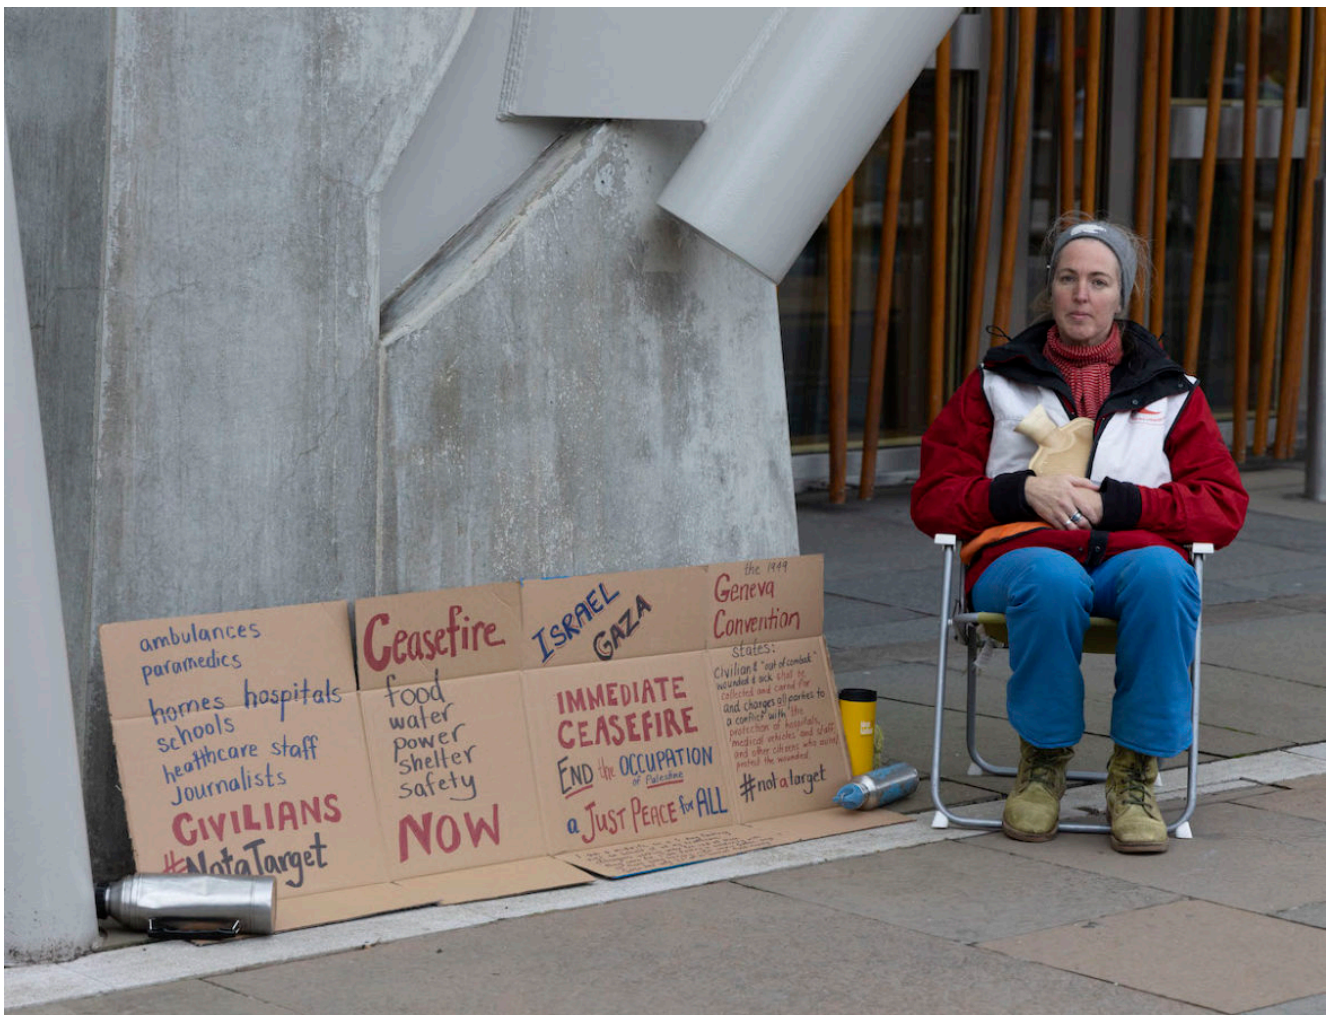 ambulances
paramedics
homes hospitals
schools
healthcare staff
journalists
CIVILIANS
#NotaTarget
Ceasefire
food
water
power
shelter
safety
NOW
ISRAEL
GAZA
IMMEDIATE
CEASEFIRE
END the OCCUPATION
of Palestine
a JUST PEACE for ALL
the 1949
Geneva
Convention
states:
Civilian & "out of combat"
wounded & sick shall be
collected and cared for
and charges all parties to
a conflict with "the
protection of hospitals,
medical vehicles and staff,
and other citizens who assist
protect the wounded.
#notatarget